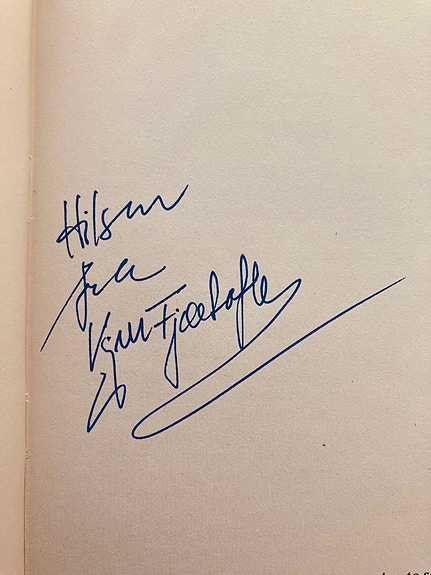 Hilsen
fra
Kjell Fjørtoft